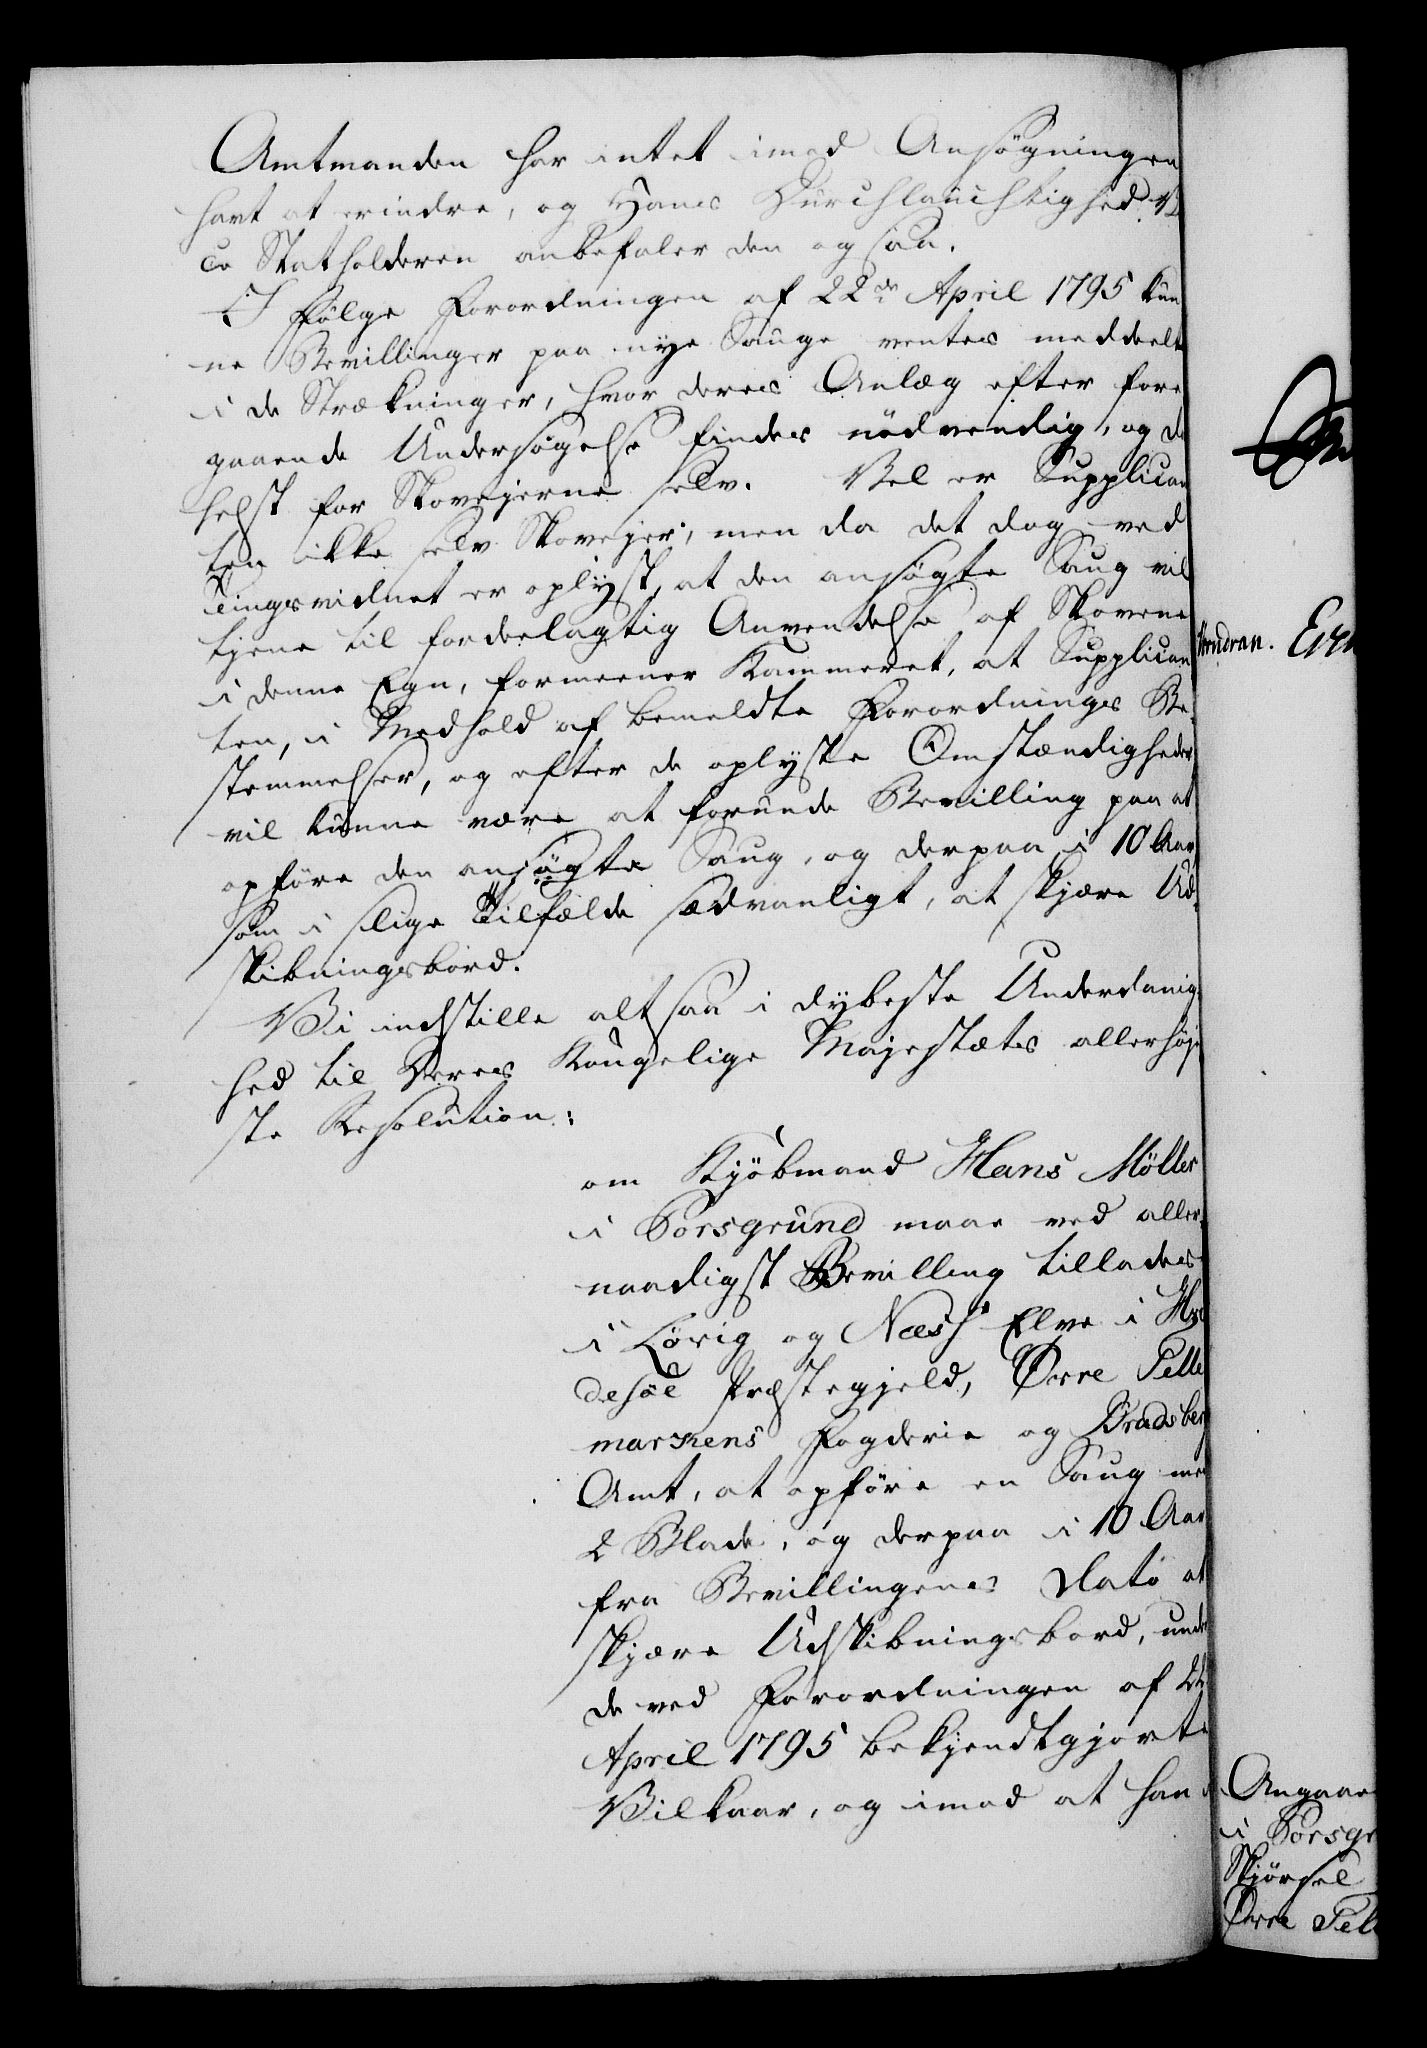 Amtmanden har intet imod Ansøgningen
havt at erindre, og Hans Durchlauchtighed Vi
ce Statholderen anbefaler den ogsaa.
I Følge Forordningen af 22de April 1795 kun
ne Bevillinger paa nye Sauge ventes meddeelte
i de Strækninger, hvor deres Anlæg efter fore
gaaende Undersøgelse findes nödvendig, og da
helst for Skovejerne selv. Vel er Supplican
ten ikke selv Skovejer, men da det dog ved
Tingsvidnet er oplyst, at den ansøgte Saug vil
tjene til fordeelagtig Anvendelse af Skovene
i denne Egn, formeener Kammeret, at Supplican
ten, i Medhold af bemeldte Forordnings Be-
stemmelser, og efter de oplyste Omstændigheder
vil kunne være at forunde Bevilling paa at
opføre den ansøgte Saug, og derpaa i 10 Aar,
som i slige Tilfælde sædvanligt, at skjære Ud-
skibningsbord.
Vi indstille altsaa i dybeste Underdanig-
hed til Deres Kongelige Majestæts allerhøje
ste Resolution:
om Kjöbmand Hans Möller
i Porsgrund maae ved aller-
naadigst Bevilling tillades
i Lörig og Næss Elve i Hvi
desöe Præstegjeld, Øvre Telle
markens Fogderie og Bradsberg
Amt, at opføre en Saug med
2 Blade, og derpaa i 10 Aar
fra Bevillingens Dato at
skjære Udskibningsbord, under
de ved Forordningen af 22
April 1795 bekjendtgjorte
Vilkaar, og imod at han
Angaae
i Porsgr
Skjörsel
Øvre Tel